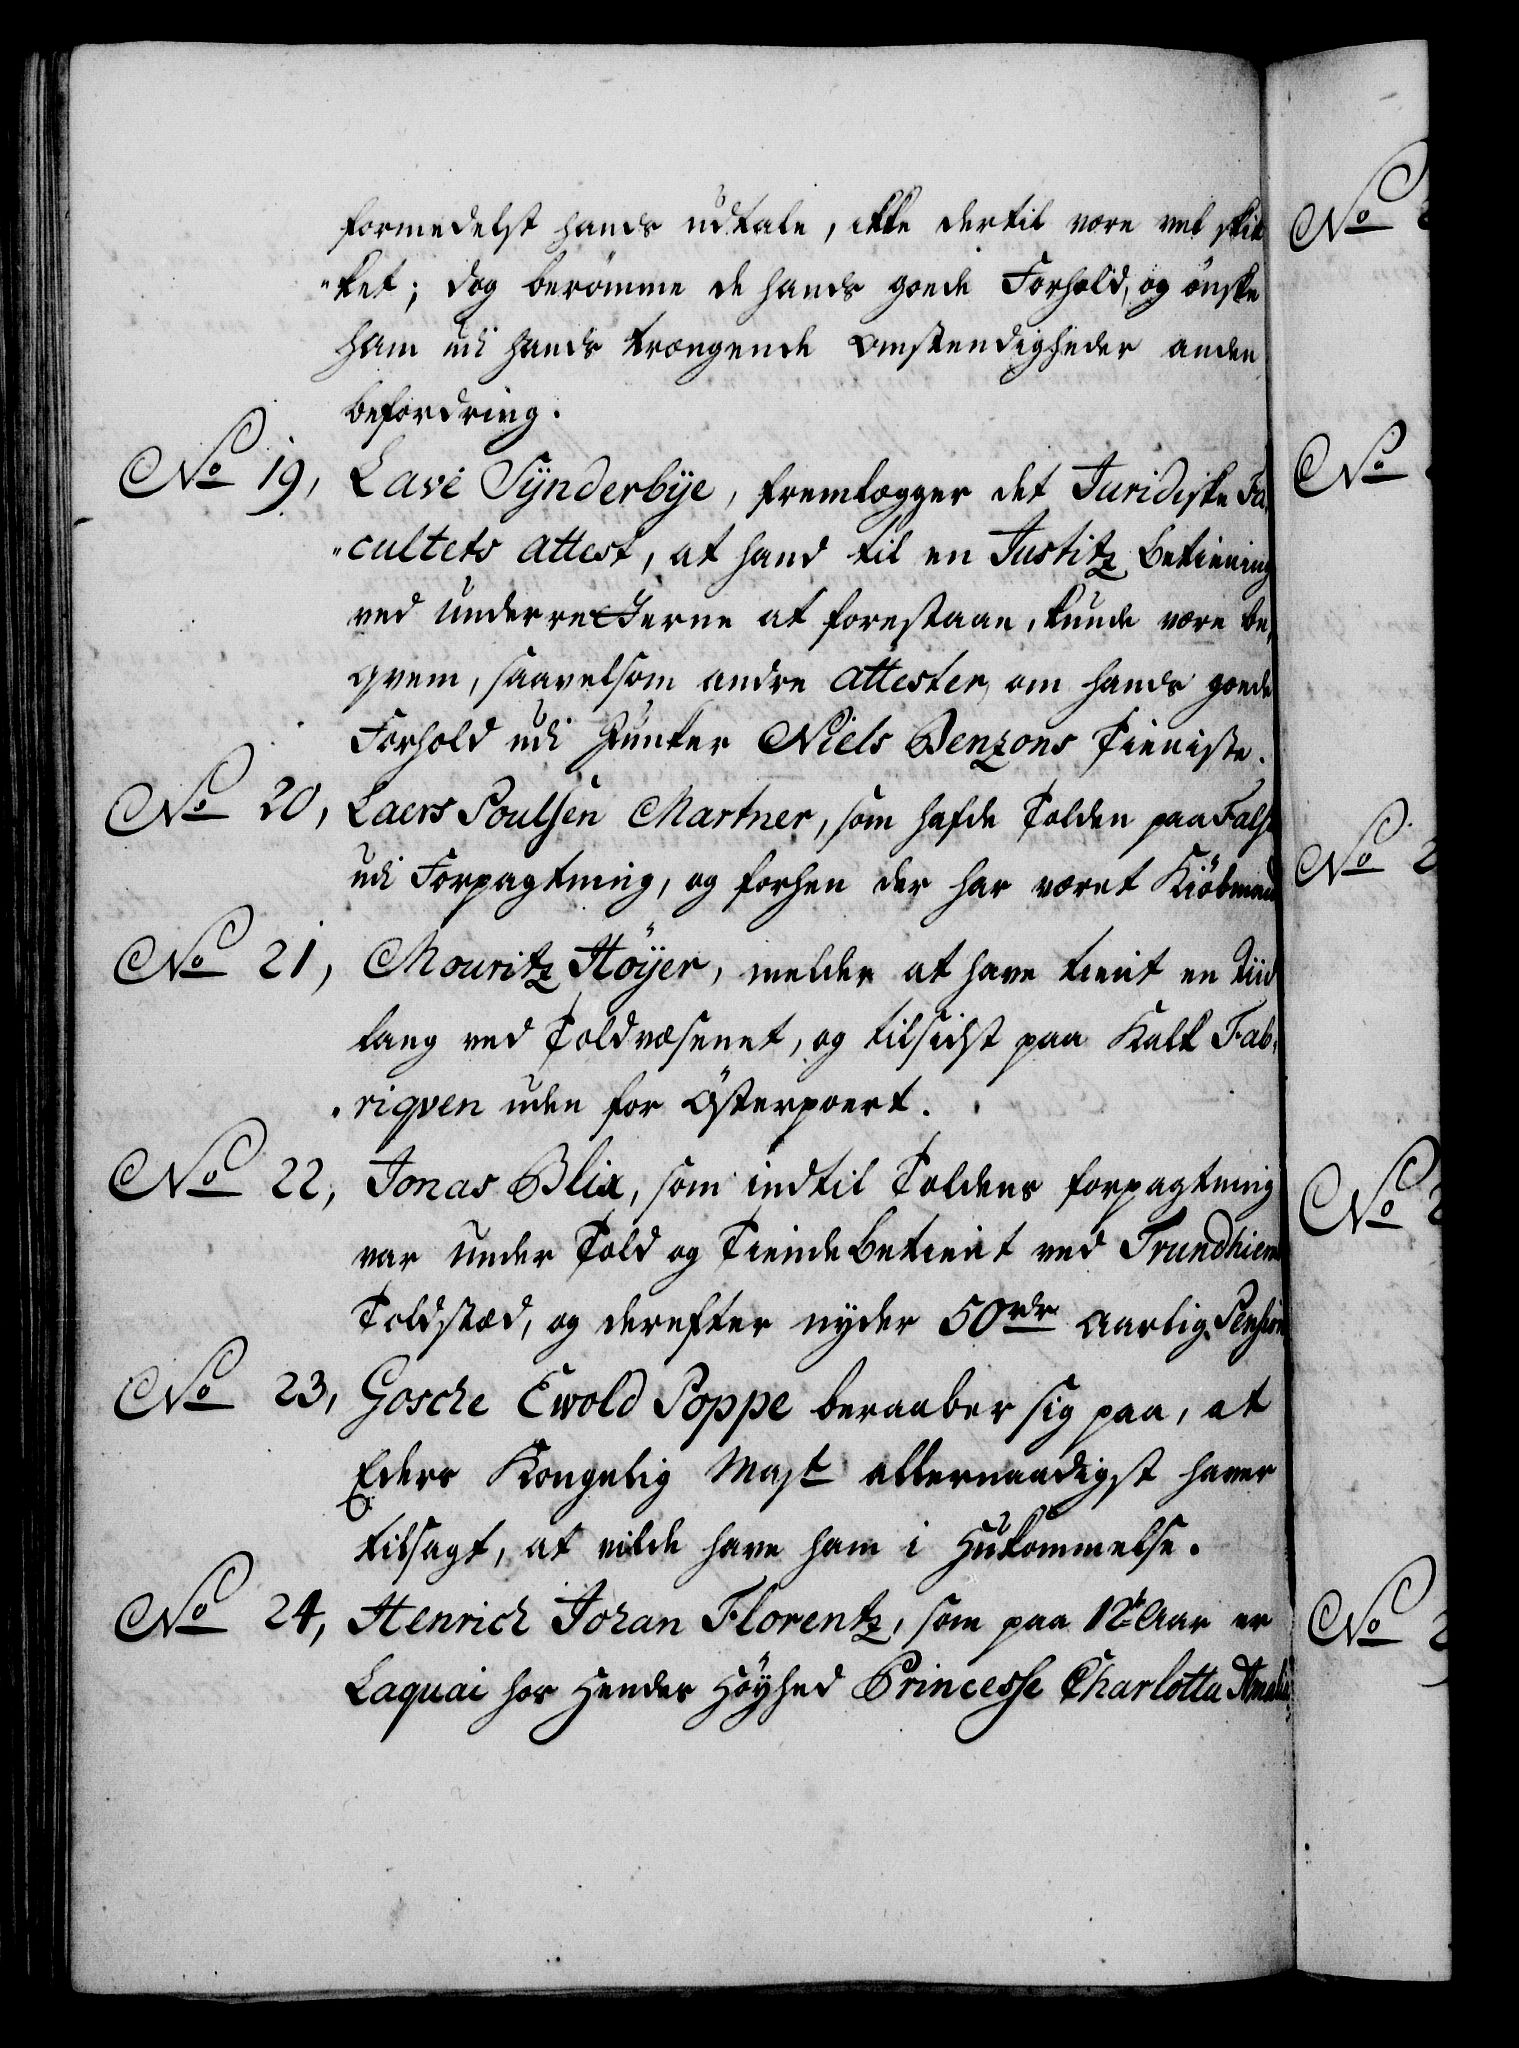 formedelst hands udtale, ikke dertil være vel skik
"ket; dog berömme de hands goede Forhold, og önske
ham udi hands trængende Omstendigheder anden
befordring.
No 19, Lave Sÿnderbÿe, fremlægger det Juridiske Fa,
"cultets attest, at hand til en Justitz betiening
ved underretterne at forestaae, kunde være be,
qvem, saavelsom andre attester, om hands goede
Forhold udi Junker Niels Benzons Tieniste.
No 20, Laers Poulsen Martner, som hafde Tolden paa Fals
udi Forpagtning, og forhen der har været Kiöbmand
No 21, Mouritz Höÿer, melder at have tient en tiid
lang ved Toldvæsenet, og tilsidst paa Kalk Fab,
riqven uden for Österpoert.
No 22, Jonas Blix, som indtil Toldens forpagtning
var under Told og Tiende betient ved Trundhiem
Toldsted, og derefter nyder 50 rdr Aarlig Pension
No 23, Gosche Ewold Poppe beraaber sig paa, at
Eders Kongelig Mayt allernaadigst haver
tilsagt, at vilde have ham i Hukommelse.
No 24, Henrich Johan Florentz, som paa 12te Aar er
Laquai hos Hendes Höyhed Princesse Charlotta Amalia
No
No
No 2
No 2
No 2